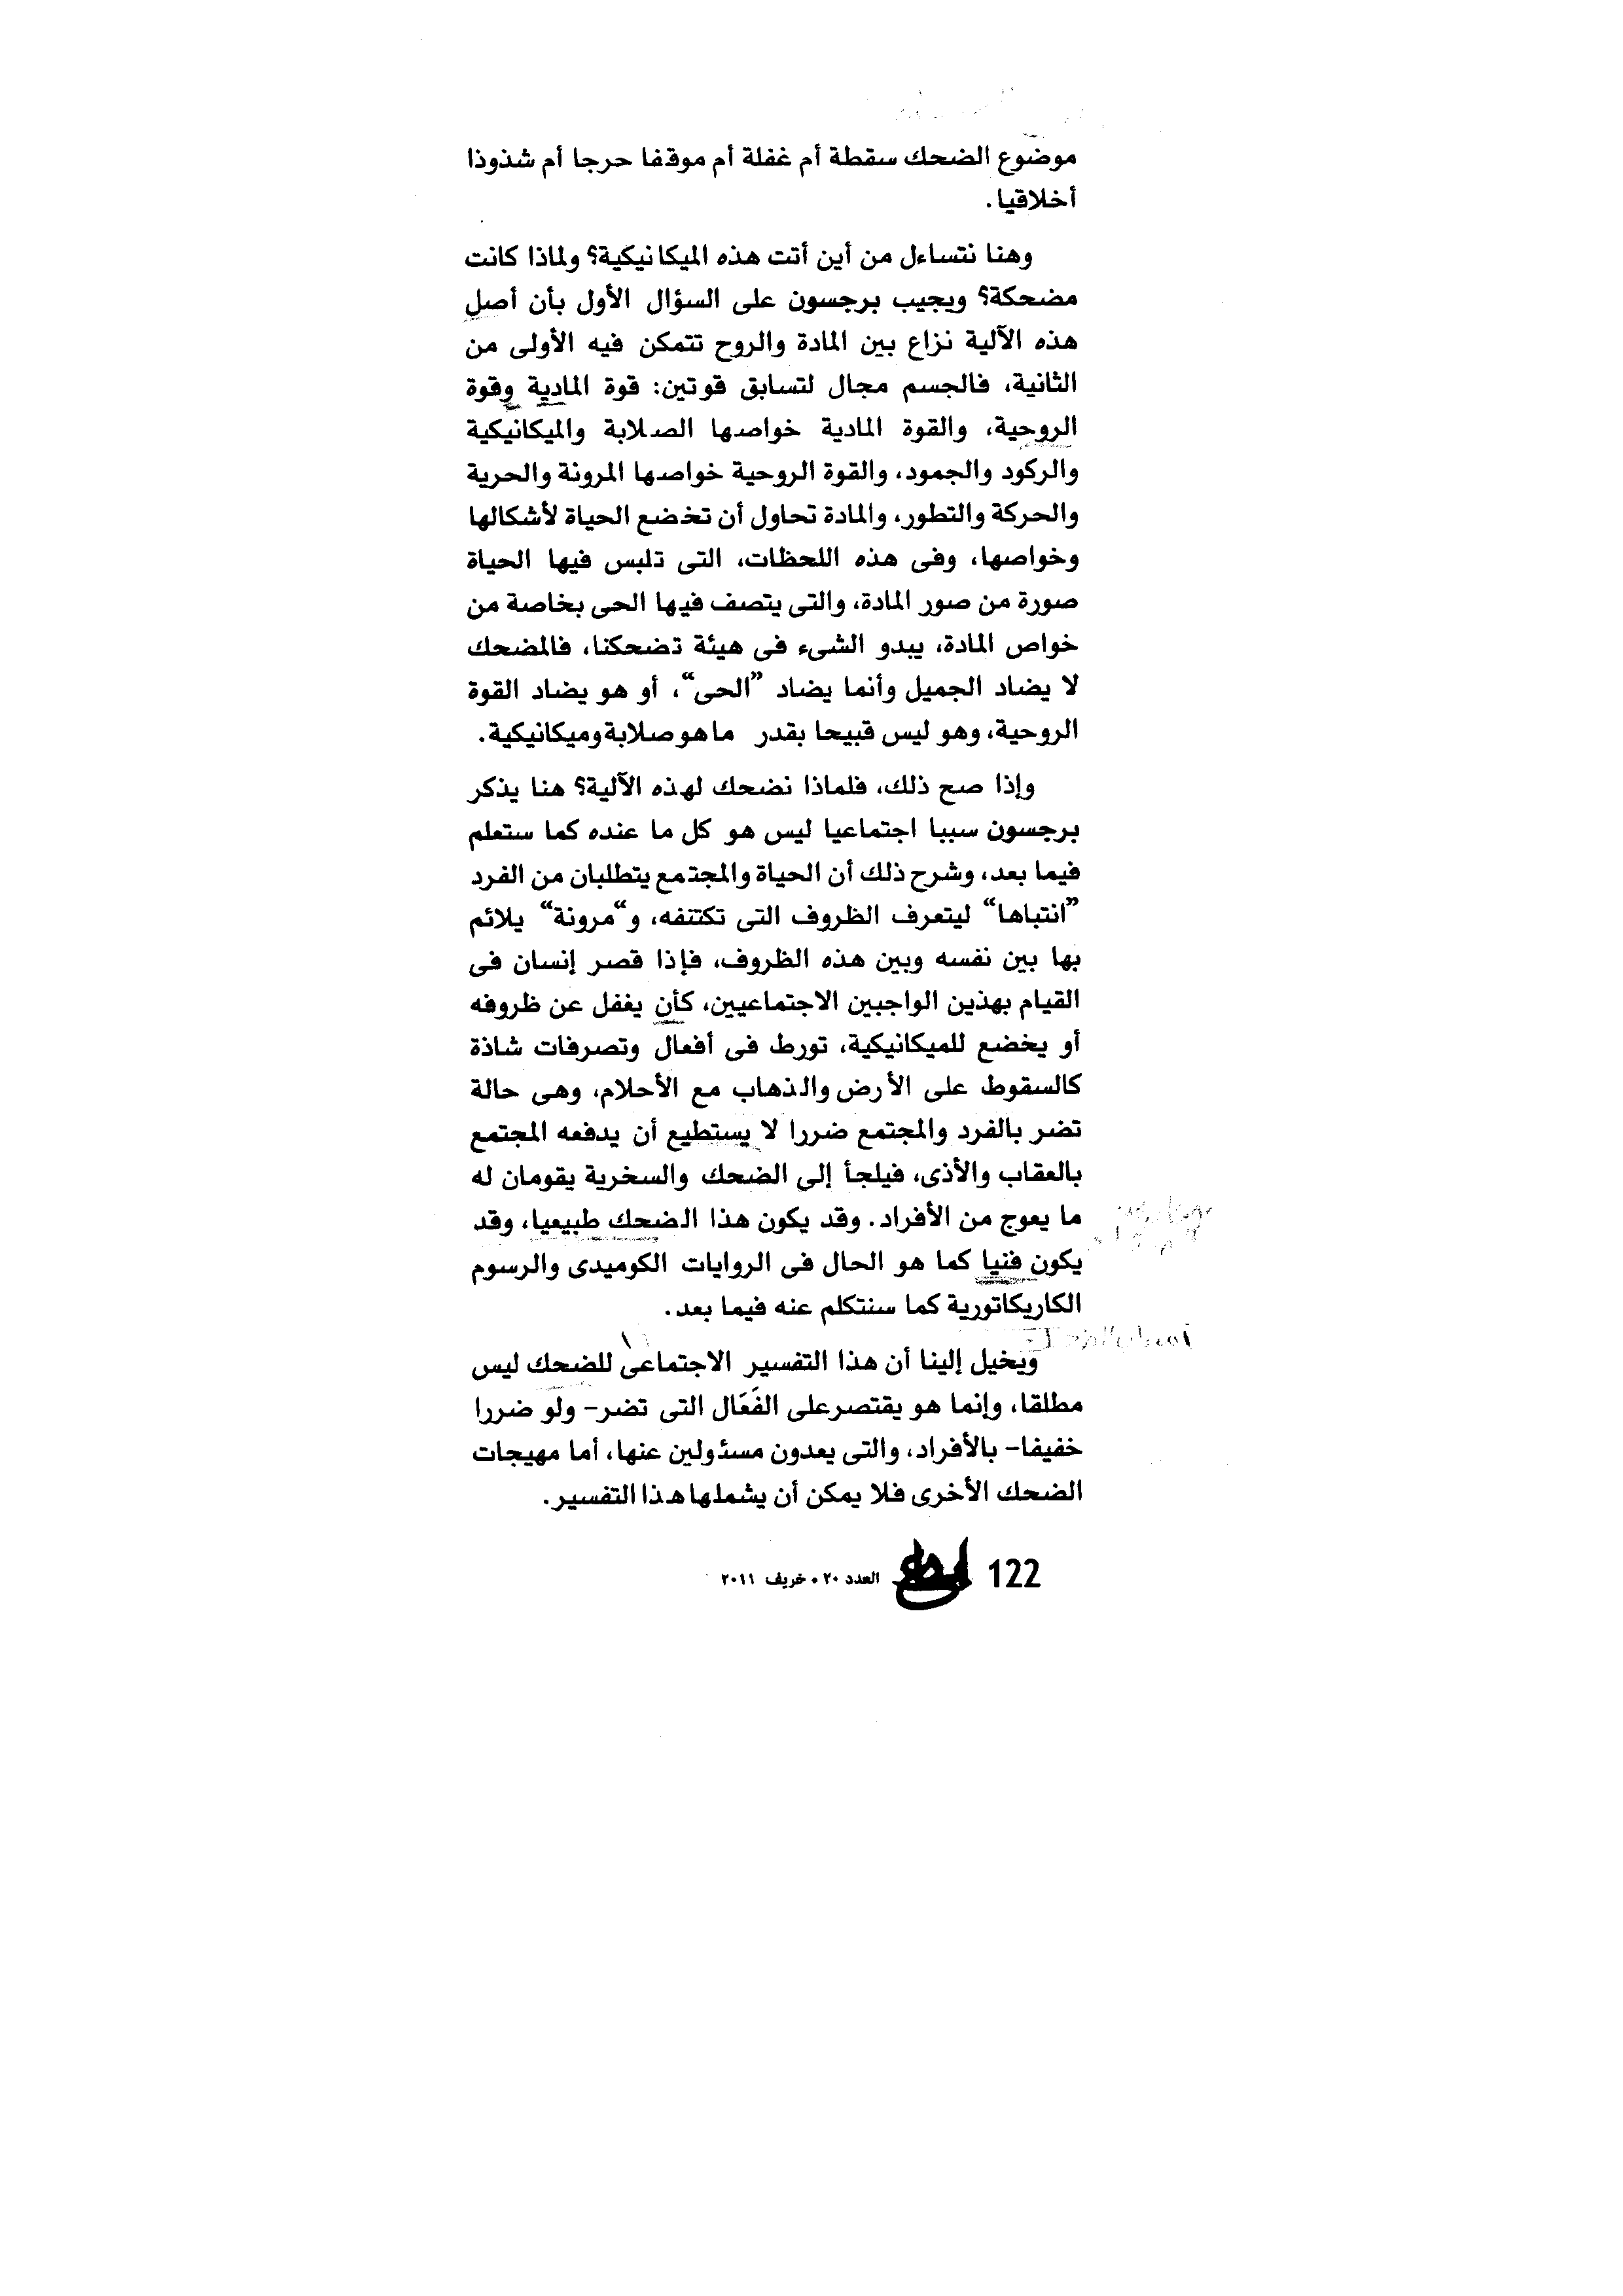 موضوع الضحك سقطة أم غفلة أم موقفا حرجا أم شذوذا
أخلاقيا.
وهنا نتساءل من أين أتت هذه الميكانيكية؟ ولماذا كانت
مضحكة؟ ويجيب برجسون على السؤال الأول بأن أصل
هذه الآلية نزاع بين المادة والروح تتمكن فيه الأولى من
الثانية، فالجسم مجال لتسابق قوتين: قوة المادية وقوة
الروحية، والقوة المادية خواصها الصلابة والميكانيكية
والركود والجمود، والقوة الروحية خواصها المرونة والحرية
والحركة والتطور، والمادة تحاول أن تخضع الحياة لأشكالها
وخواصها، وفى هذه اللحظات، التى تلبس فيها الحياة
صورة من صور المادة، والتى يتصف فيها الحى بخاصة من
خواص المادة، يبدو الشىء فى هيئة تضحكنا، فالمضحك
لا يضاد الجميل وأنما يضاد "الحى"، أو هو يضاد القوة
الروحية، وهو ليس قبيحا بقدر ما هو صلابة وميكانيكية.
وإذا صح ذلك، فلماذا نضحك لهذه الآلية؟ هنا يذكر
برجسون سببا اجتماعيا ليس هو كل ما عنده كما ستعلم
فيما بعد، وشرح ذلك أن الحياة والمجتمع يتطلبان من الفرد
"انتباها" ليتعرف الظروف التى تكتنفه، و"مرونة" يلائم
بها بين نفسه وبين هذه الظروف، فإذا قصر إنسان فى
القيام بهذين الواجبين الاجتماعيين، كأن يغفل عن ظروفه
أو يخضع للميكانيكية، تورط فى أفعال وتصرفات شاذة
كالسقوط على الأرض والذهاب مع الأحلام، وهى حالة
تضر بالفرد والمجتمع ضررا لا يستطيع أن يدفعه المجتمع
بالعقاب والأذى، فيلجأ إلى الضحك والسخرية يقومان له
ما يعوج من الأفراد. وقد يكون هذا الضحك طبيعيا، وقد
يكون فنيا كما هو الحال فى الروايات الكوميدى والرسوم
الكاريكاتورية كما سنتكلم عنه فيما بعد.
ويخيل إلينا أن هذا التفسير الاجتماعى للضحك ليس
مطلقا، وإنما هو يقتصر على الفَعَال التى تضر- ولو ضررا
خفيفا- بالأفراد، والتى يعدون مسئولين عنها، أما مهيجات
الضحك الأخرى فلا يمكن أن يشملها هذا التفسير.
122 إبداع العدد ٢٠ • خريف ٢٠١١